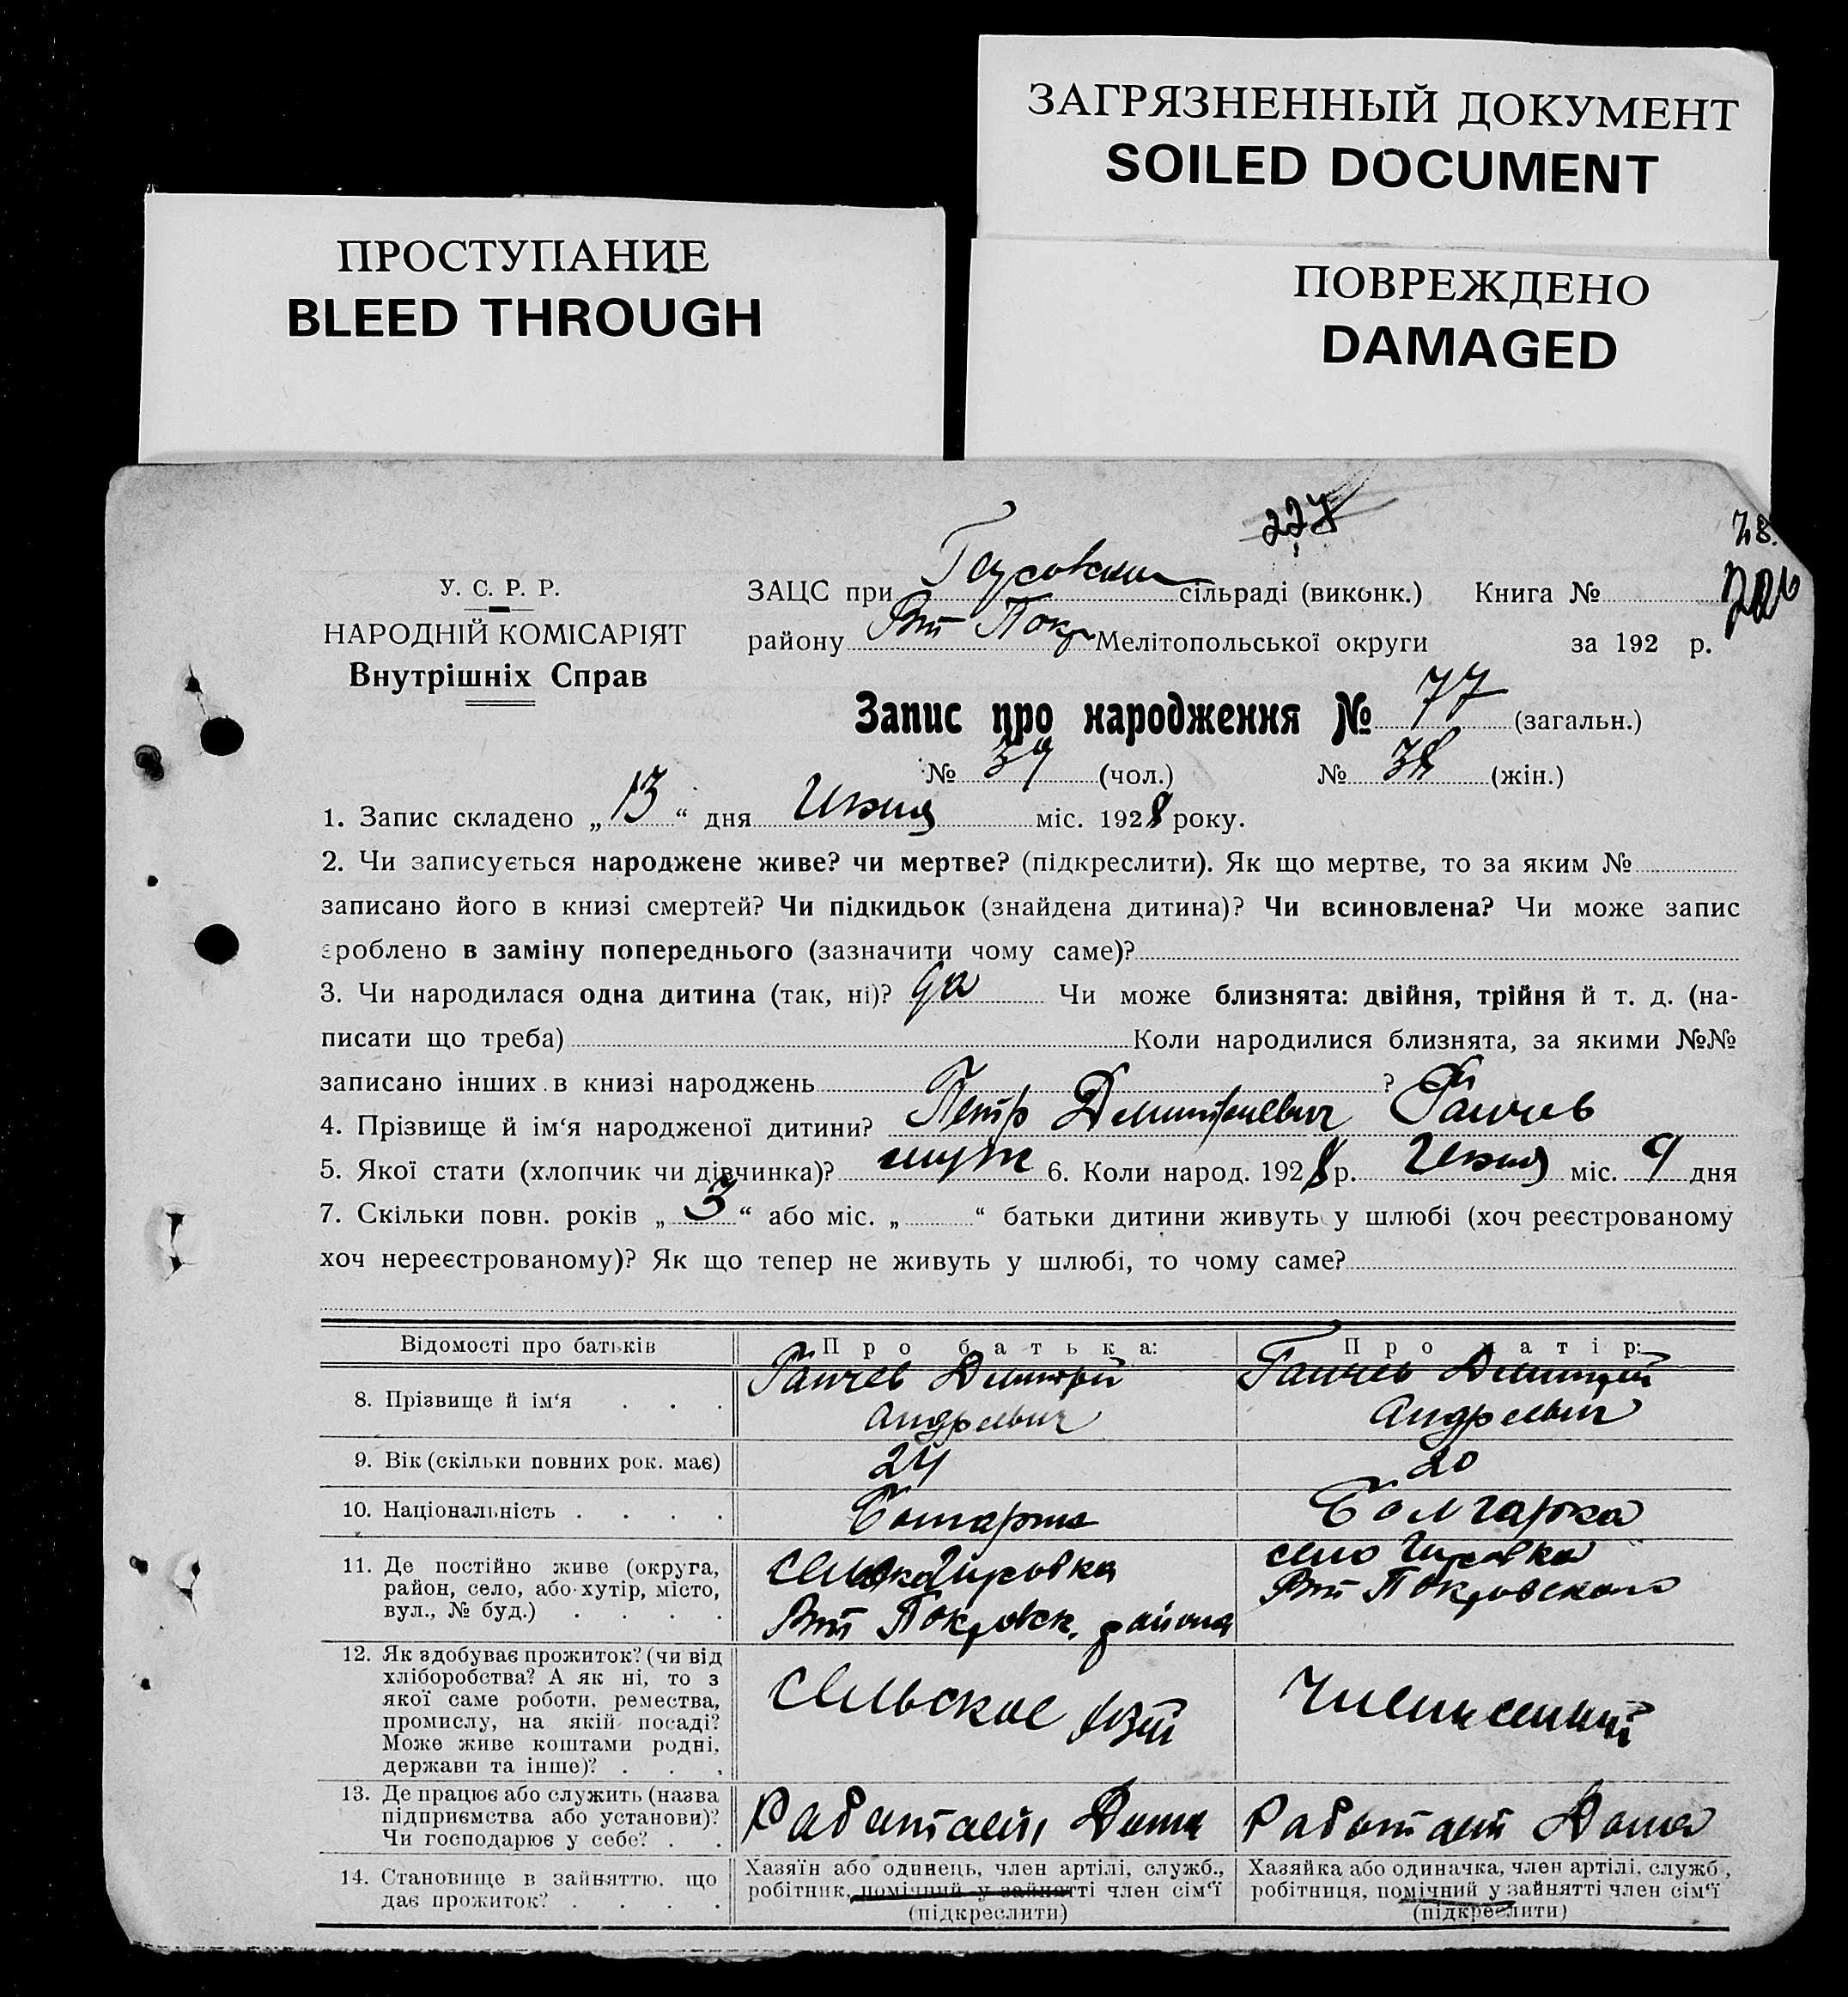 ЗАГРЯЗНЕННЫЙ ДОКУМЕНТ
SOILED DOCUMENT
ПРОСТУПАНИЕ
BLEED THROUGH
ПОВРЕЖДЕНО
DAMAGED
227
У. С. Р. Р.
НАРОДНІЙ КОМІСАРІЯТ
Внутрішніх Справ
ЗАЦС при сільраді (виконк.) Книга №
району Вт Покр Мелітопольської округи за 192 р.
Запис про народження № 77 (загальн.)
№ 39 (чол.) № 38 (жін.)
1. Запис складено „ 13 “ дня Июня міс. 1928 року.
2. Чи записується народжене живе? чи мертве? (підкреслити). Як що мертве, то за яким №
записано його в книзі смертей? Чи підкидьок (знайдена дитина)? Чи всиновлена? Чи може запис
зроблено в заміну попереднього (зазначити чому саме)?
3. Чи народилася одна дитина (так, ні)? да Чи може близнята: двійня, трійня й т. д. (на-
писати що треба) Коли народилися близнята, за якими №№
записано інших в книзі народжень ?
4. Прізвище й ім'я народженої дитини? Петр Дмитриевич Ганчев
5. Якої стати (хлопчик чи дівчинка)? муж 6. Коли народ. 1928 р. Июня міс. 9 дня
7. Скільки повн. років „ 3 “ або міс. „ “ батьки дитини живуть у шлюбі (хоч реєстрованому
хоч нереєстрованому)? Як що тепер не живуть у шлюбі, то чому саме?
Відомості про батьків Про батька: Про матір:
8. Прізвище й ім'я Ганчев Дмитрий Андреевич Ганчев Дмитрий Андреевич
9. Вік (скільки повних рок. має) 24 20
10. Національність Болгарка
11. Де постійно живе (округа,
район, село, або хутір, місто,
вул., № буд.)
Вт Покровск. района
село
Вт Покровского
12. Як здобуває прожиток? (чи від
хліборобства? А як ні, то з
якої саме роботи, ремества,
промислу, на якій посаді?
Може живе коштами родні,
держави та інше)?
Сельское
13. Де працює або служить (назва
підприємства або установи)?
Чи господарює у себе?
Работает Дома
Работает Дома
14. Становище в зайняттю, що
дає прожиток?
Хазяїн або одинець, член артілі, служб.,
робітник, помічний у зайнятті член сім'ї
(підкреслити)
Хазяйка або одиначка, член артілі, служб.,
робітниця, помічний у зайнятті член сім'ї
(підкреслити)